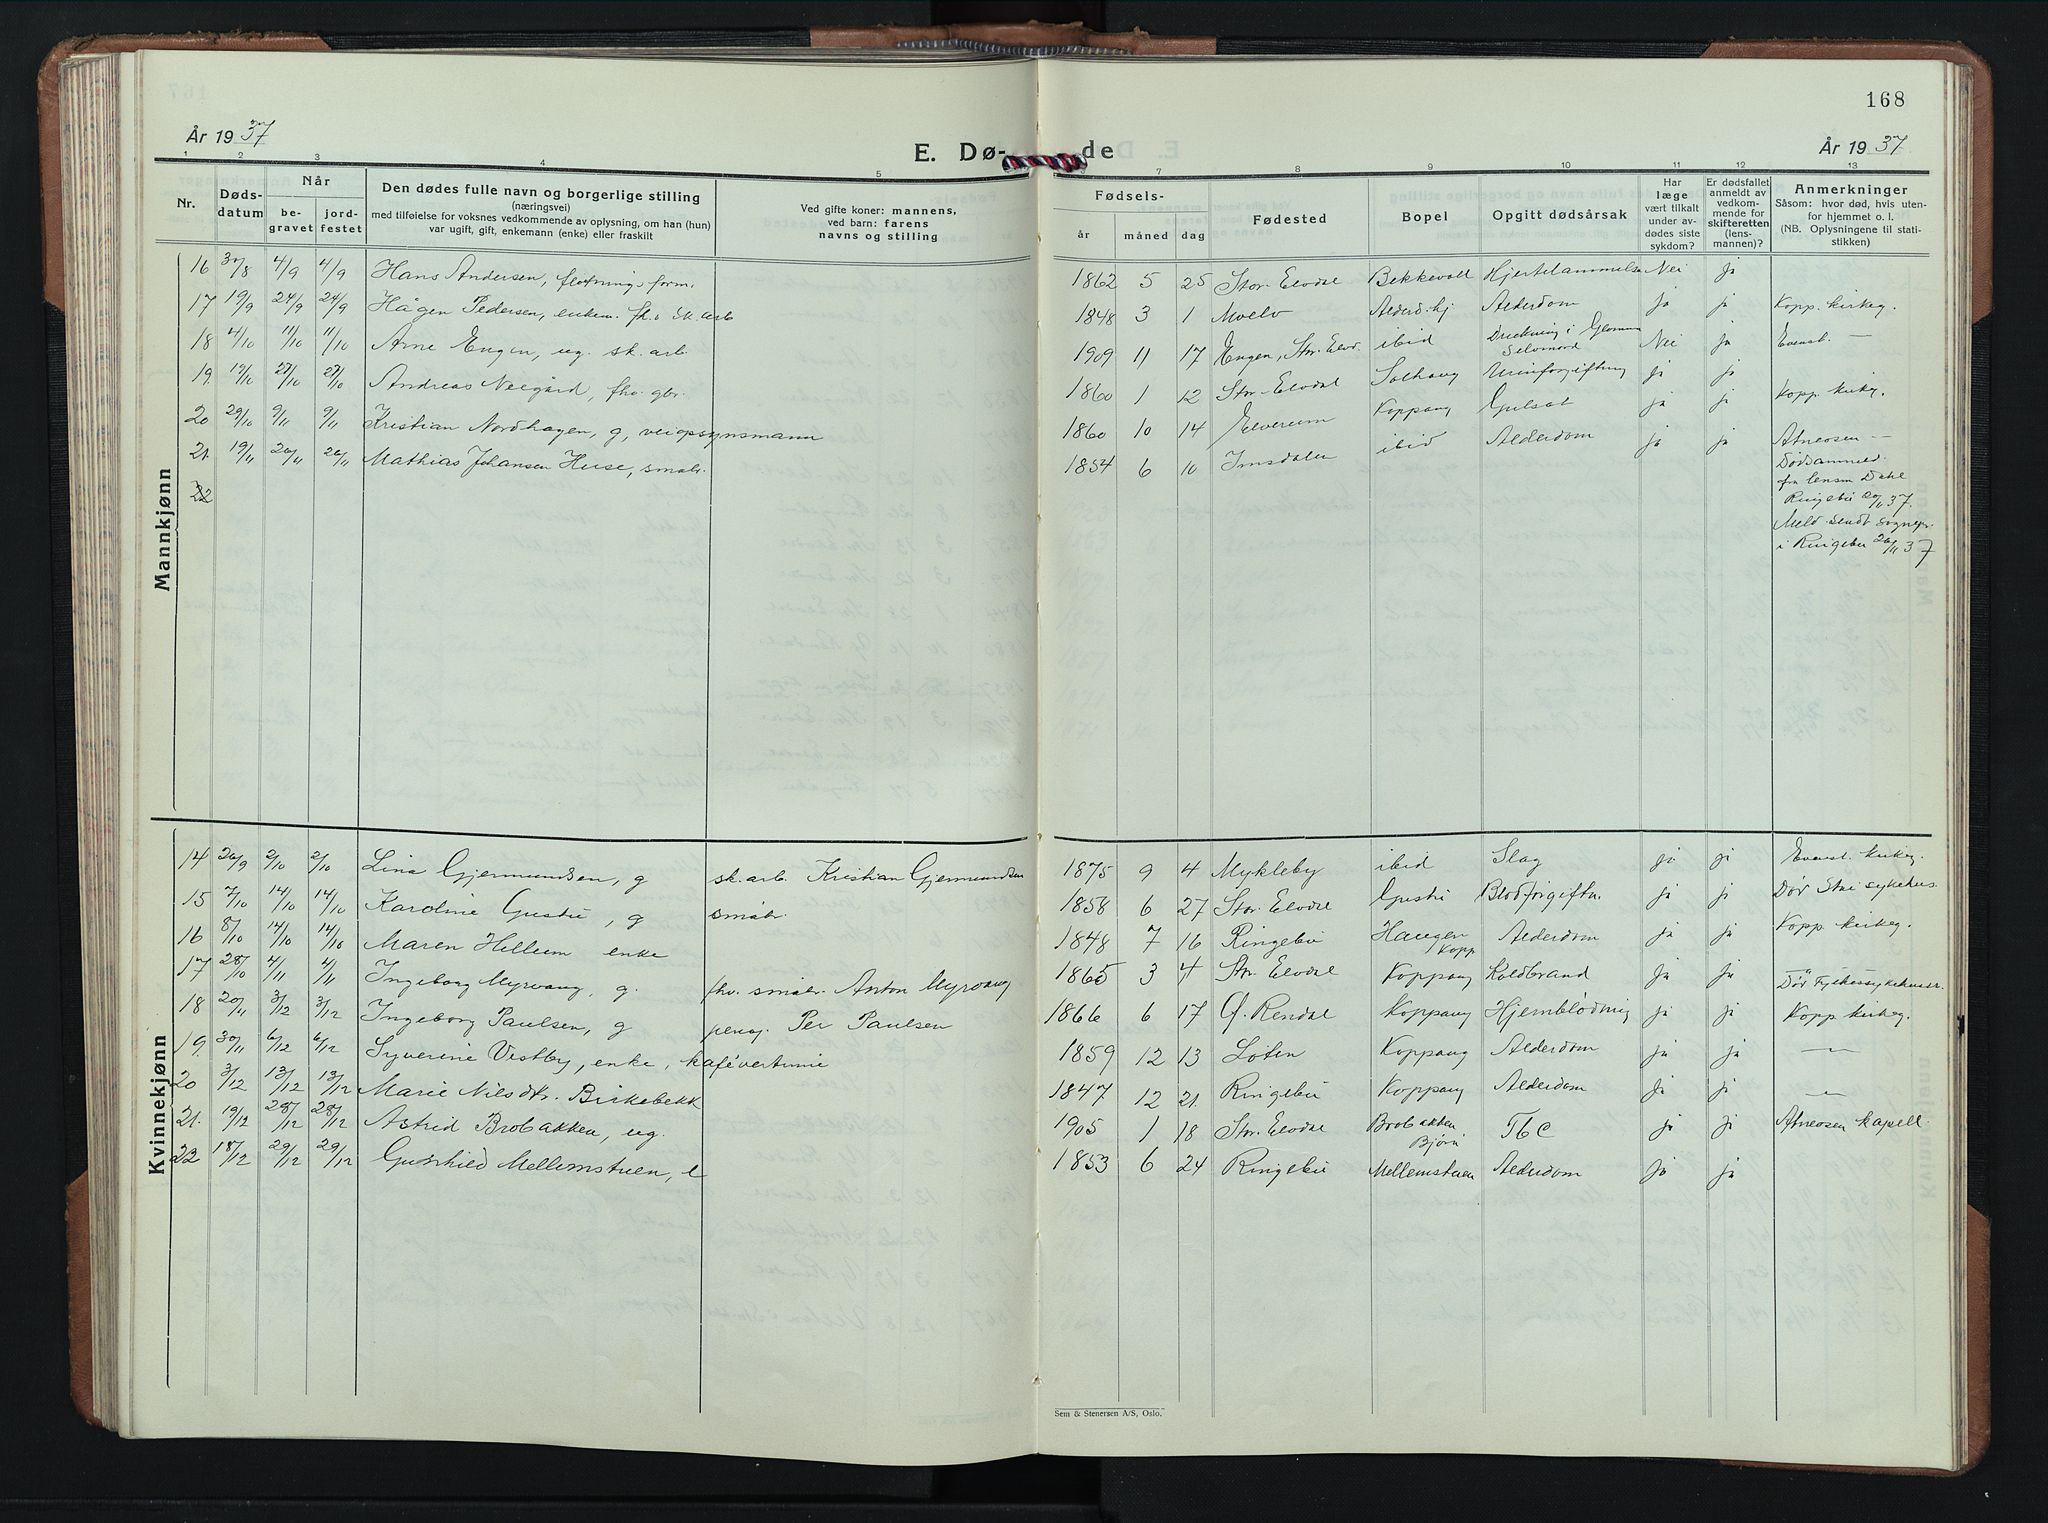 168
År 1937
E. Dø-
de
År 1937
1 2 3 4 5 7 8 9 10 11 12 13
Nr. Døds-datum Når be-gravet jord-festet
Den dødes fulle navn og borgerlige stilling
(næringsvei)
med tilføielse for voksnes vedkommende av oplysning, om han (hun)
var ugift, gift, enkemann (enke) eller fraskilt
Ved gifte koner: mannens,
ved barn: farens
navns og stilling
Fødsels-
år måned dag
Fødested
Bopel
Opgitt dødsårsak
Har læge vært tilkalt under av-dødes siste sykdom?
Er dødsfallet anmeldt av vedkom-mende for skifteretten (lens-mannen)?
Anmerkninger
Såsom: hvor død, hvis uten-
for hjemmet o. l.
(NB. Oplysningene til stati-
stikken)
Mannkjønn
16 30/8 4/9 4/9 Hans Andersen, fløtnings form. 1862 5 25 Stor-Elvdal Bekkevoll Hjertelammelse Nei ja
17 19/9 24/9 24/9 Hågen Pedersen, enkem. fh. M. arb 1848 3 1 Moelv Alderd.hj Alderdom ja ja Kopp. kirkeg.
18 4/10 11/10 11/10 Arne Engen, ug. sk. arb. 1909 11 17 Engen, Stor-Elvd. ibid Drukning i Glomma Selvmord Nei ja Evenst. —
19. 19/10 27/10 27/10 Andreas Neegård, fhv. gbr. 1860 1 12 Stor-Elvdal Solhaug Urinforgiftning ja ja Kopp. kirkeg.
20 29/10 9/11 9/11 Kristian Nordhagen, g, veiopsynsmann 1860 10 14 Elverum Koppang Gulsot ja ja
21. 19/11 26/11 26/11 Mathias Johansen Huse, småbr. 1854 6 10 Imsdalen ibid Alderdom ja ja Atneosen —
Dødsanmeld.
fra lensm Dahl
Ringebu 20/11 37.
Meld. sendt sognepr.
i Ringebu 26/11 37
22
Kvinnekjønn
14 26/9 2/10 2/10 Lina Gjermundsen, g sk. arb. Kristian Gjermundsen 1875 9 4 Mykleby ibid Slag ja ja Evenst. kirkeg.
15 7/10 14/10 14/10 Karoline Gustu, g småbr. 1858 6 27 Stor. Elvdal Gustu Blodforgiftn. ja ja Død Stai sykehus.
16 8/10 14/10 14/10 Maren Hillum enke 1848 7 16 Ringebu Haugen Kopp Alderdom ja ja Kopp. kirkeg.
17 28/10 4/11 4/11 Ingeborg Myrvang, g. fhv. småbr. Anton Myrvang 1865 3 4 Stor. Elvdal Koppang Koldbrand ja ja Død Fylkessykehuset
18 20/11 3/12 3/12 Ingeborg Paulsen, g pensj. Per Paulsen 1866 6 17 Ø. Rendal Koppang Hjerneblødning ja ja Kopp. kirkeg.
19. 30/11 6/12 6/12 Syverine Vestby, enke, kafévertinne 1859 12 13 Løten Koppang Alderdom ja ja —
20 3/12 13/12 13/12 Marie Nilsdtr. Birkebekk 1847 12 21. Ringebu Koppang Alderdom ja ja —
21. 19/12 28/12 28/12 Astrid Brobakken, ug. 1905 1 18 Stor. Elvdal Brobakken Bjørå Tbc ja ja Atneosen kapell.
22 18/12 29/12 29/12 Gunhild Mellemstuen, e 1853 6 24 Ringebu Mellemstuen Alderdom ja ja
Sem & Stenersen A/S, Oslo.